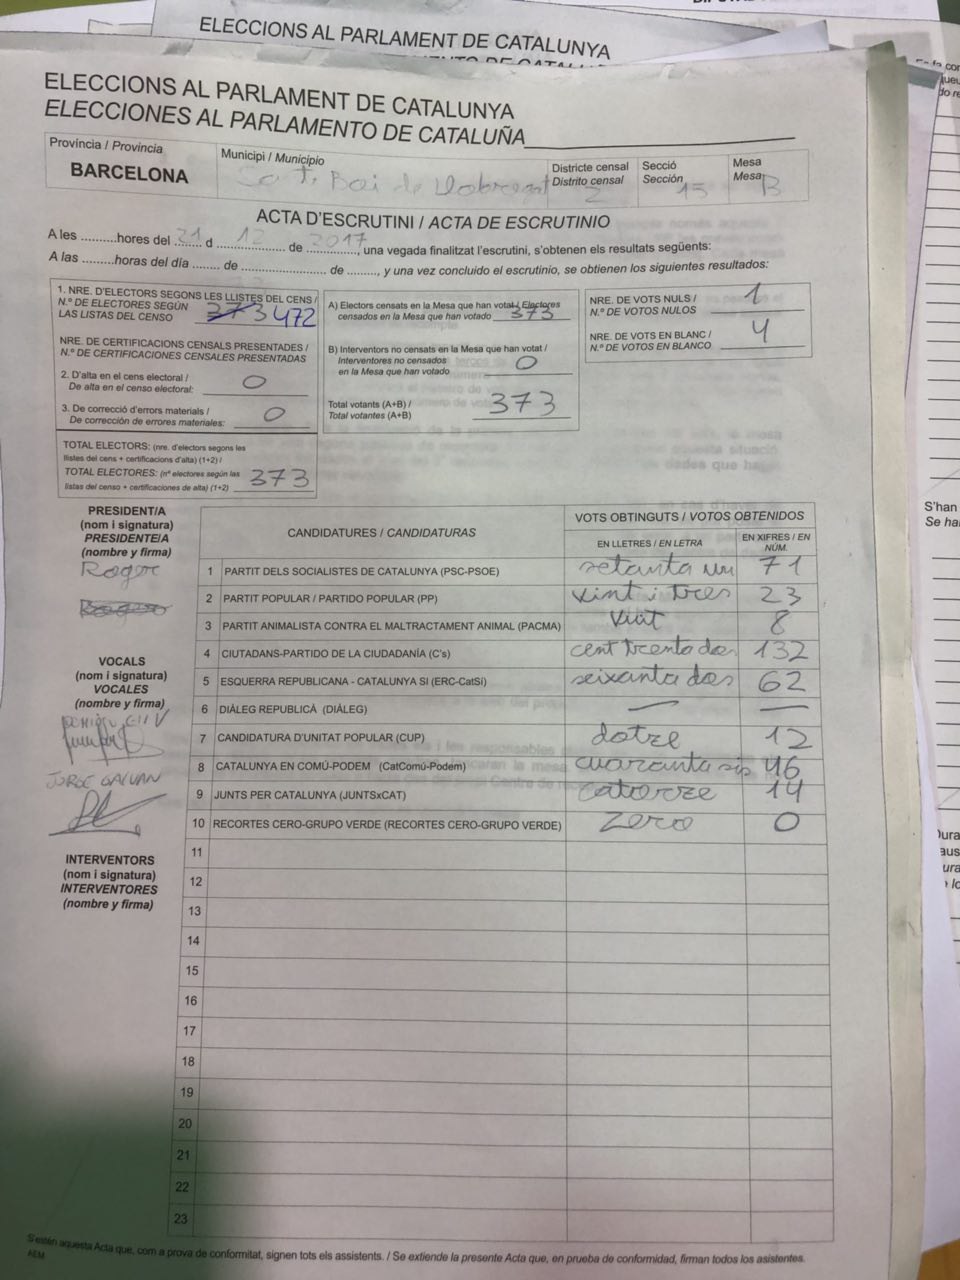 ELECCIONS AL PARLAMENT DE CATALUNYA
ELECCIONS AL PARLAMENT DE CATALUNYA
ELECCIONES AL PARLAMENTO DE CATALUÑA
Província / Provincia
BARCELONA
Municipi / Municipio
Boi de Llobregat
Districte censal
Distrito censal
2
Secció
Sección
15
Mesa
Mesa
B
ACTA D'ESCRUTINI / ACTA DE ESCRUTINIO
A les .........hores del 21 d 12 de 2017, una vegada finalitzat l'escrutini, s'obtenen els resultats següents:
A las .........horas del día ........ de ........................ de ........, y una vez concluido el escrutinio, se obtienen los siguientes resultados:
1. NRE. D'ELECTORS SEGONS LES LLISTES DEL CENS /
N.º DE ELECTORES SEGÚN
LAS LISTAS DEL CENSO 373 472
NRE. DE CERTIFICACIONS CENSALS PRESENTADES /
N.º DE CERTIFICACIONES CENSALES PRESENTADAS
2. D'alta en el cens electoral /
De alta en el censo electoral: 0
3. De correcció d'errors materials /
De corrección de errores materiales: 0
TOTAL ELECTORS: (nre. d'electors segons les
llistes del cens + certificacions d'alta) (1+2) /
TOTAL ELECTORES: (nº electores según las
listas del censo + certificaciones de alta) (1+2) 373
A) Electors censats en la Mesa que han votat / Electores
censados en la Mesa que han votado 373
B) Interventors no censats en la Mesa que han votat /
Interventores no censados
en la Mesa que han votado 0
Total votants (A+B) /
Total votantes (A+B) 373
NRE. DE VOTS NULS /
N.º DE VOTOS NULOS 1
NRE. DE VOTS EN BLANC /
N.º DE VOTOS EN BLANCO 4
PRESIDENT/A
(nom i signatura)
PRESIDENTE/A
(nombre y firma)
Roger
VOCALS
(nom i signatura)
VOCALES
(nombre y firma)
JORGE GALVAN
INTERVENTORS
(nom i signatura)
INTERVENTORES
(nombre y firma)
CANDIDATURES / CANDIDATURAS
VOTS OBTINGUTS / VOTOS OBTENIDOS
EN LLETRES / EN LETRA
EN XIFRES / EN NÚM.
1 PARTIT DELS SOCIALISTES DE CATALUNYA (PSC-PSOE) setanta un 71
2 PARTIT POPULAR / PARTIDO POPULAR (PP) vint i tres 23
3 PARTIT ANIMALISTA CONTRA EL MALTRACTAMENT ANIMAL (PACMA) vuit 8
4 CIUTADANS-PARTIDO DE LA CIUDADANÍA (C's) cent trenta dos 132
5 ESQUERRA REPUBLICANA - CATALUNYA SI (ERC-CatSí) seixanta dos 62
6 DIÀLEG REPUBLICÀ (DIÀLEG) — —
7 CANDIDATURA D'UNITAT POPULAR (CUP) dotze 12
8 CATALUNYA EN COMÚ-PODEM (CatComú-Podem) cuaranta sis 46
9 JUNTS PER CATALUNYA (JUNTSxCAT) catorze 14
10 RECORTES CERO-GRUPO VERDE (RECORTES CERO-GRUPO VERDE) zero 0
11
12
13
14
15
16
17
18
19
20
21
22
23
S'estén aquesta Acta que, com a prova de conformitat, signen tots els assistents. / Se extiende la presente Acta que, en prueba de conformidad, firman todos los asistentes.
S'han
Se ha